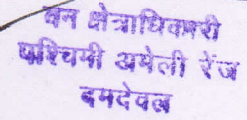 वन क्षेत्राधिकारी
पश्चिमी अमेली रेंज
दमदेवल